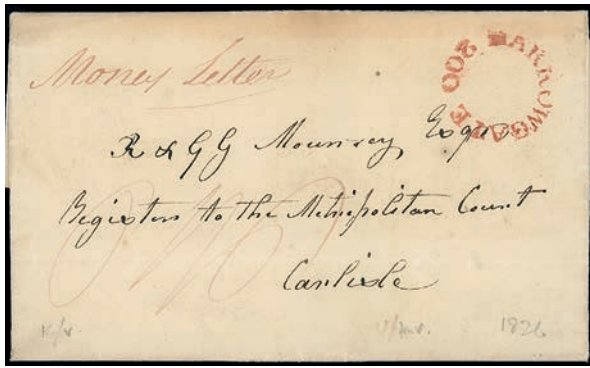 Money Letter
HARROWGATE 200
R & G G Mounsey Esqrs
Registers to the Metropolitan Court
Carlisle
1826